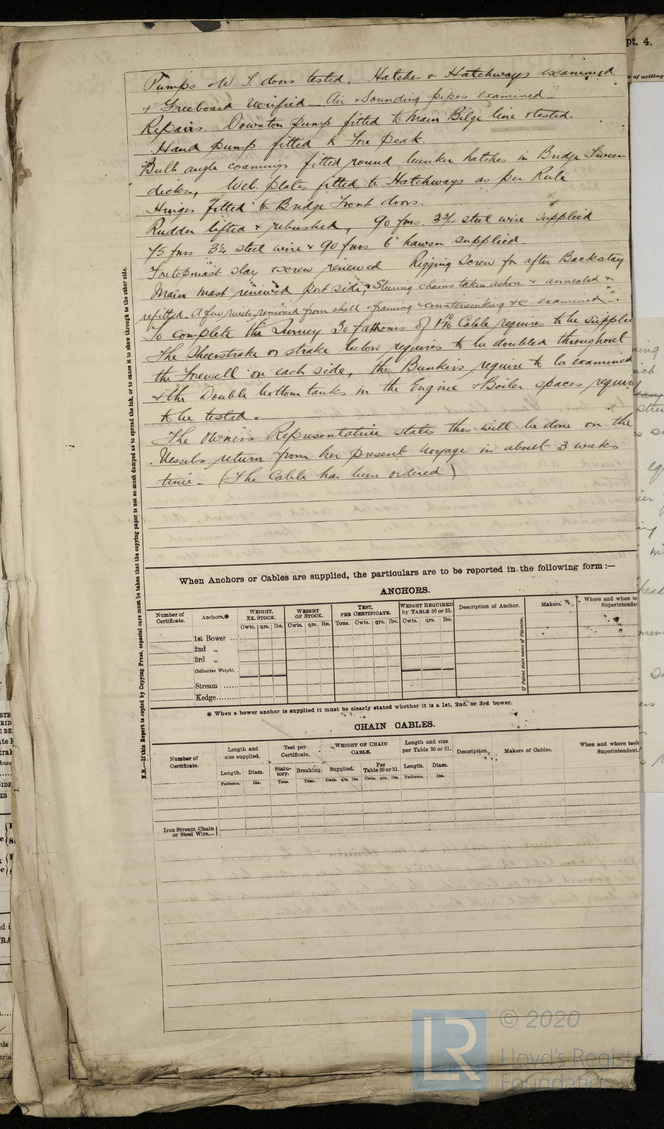 pt. 4.
of writing
Pumps & W T doors tested. Hatches & Hatchways examined
& Freeboard Verified Air & Sounding pipes examined
Repairs. Downton pump fitted to Main Bilge line & tested.
Hand pump fitted to Fore peak.
Bulb angle coamings fitted round bunker hatches in Bridge Tween
decks, Web plates fitted to Hatchways as per Rule
Hinges fitted to Bridge Front doors.
Rudder lifted & rebushed, 90 fms. 3¾ steel wire supplied
75 fms 3¼ steel wire & 90 fms 6" hawser supplied.
Foretopmast stay & screw renewed Rigging Screw for after Backstay
Main mast renewed port side, Steering chains taken ashore & annealed &
refitted. A few rivets removed from shell & framing & countersinking &c examined
To complete the Survey 30 fathoms of Cable requires to be supplied
The Sheerstrake or strake below requires to be doubled throughout
the Forewell on each side, the Bunkers require to be examined
& the Double bottom tanks in the Engine & Boiler spaces require
to be tested.
The Owners Representative states this will be done on the
Vessels return from her present voyage in about 3 weeks
time - (The Cable has been ordered)
N.B.—If this Report is copied by Copying Press, especial care must be taken that the copying paper is not so much damped as to spread the ink, or to cause it to show through to the other side.
When Anchors or Cables are supplied, the particulars are to be reported in the following form :—
ANCHORS.
Number of Certificate. Anchors.* WEIGHT, EX. STOCK. WEIGHT OF STOCK. TEST, PER CERTIFICATE. WEIGHT REQUIRED by TABLE 30 or 31. Description of Anchor. Makers. Where and when te Superintenden
Cwts. qrs. lbs. Cwts. qrs. lbs. Tons. Cwts. qrs. lbs. Cwts. qrs. lbs.
1st Bower ...
2nd „
3rd „
Collective Weight.
Stream ......
Kedge......
If Patent state name of Patentee.
* When a bower anchor is supplied it must be clearly stated whether it is a 1st, 2nd, or 3rd bower.
CHAIN CABLES.
Number of Certificate. Length and size supplied. Test per Certificate. WEIGHT OF CHAIN CABLE. Length and size per Table 30 or 31. Description. Makers of Cables. When and where teste Superintendent.
Length. Diam. Statutory. Breaking. Supplied. Per Table 30 or 31. Length. Diam.
Fathoms. Ins. Tons. Tons. Cwts. qrs. lbs. Cwts. qrs. lbs. Fathoms. Ins.
Iron Stream Chain or Steel Wire...
© 2020
Lloyd's Register
Foundation